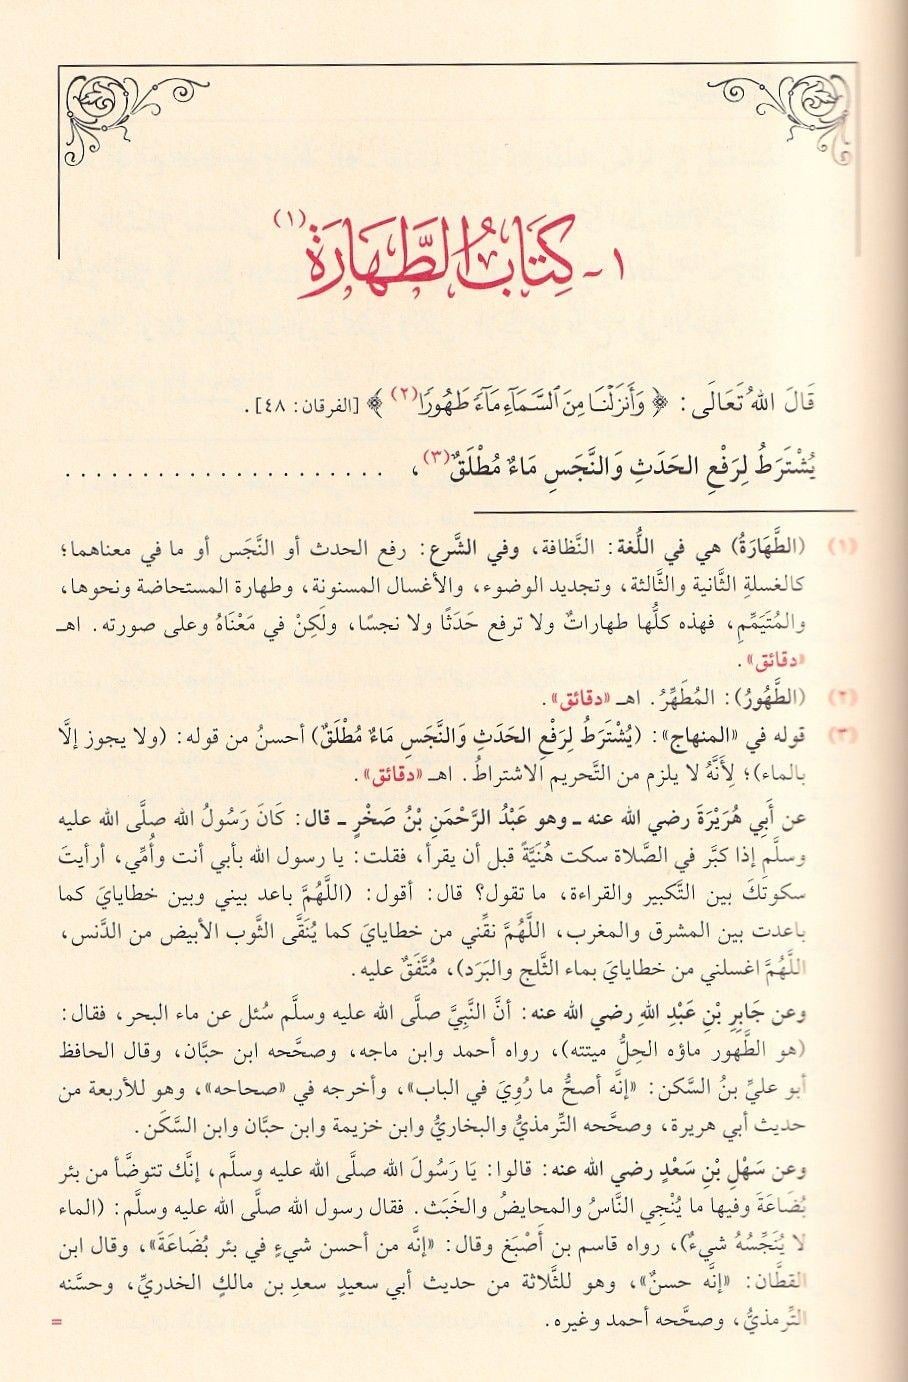 ١- كِتَابُ الطَّهَارَةِ (١)
قَالَ اللهُ تَعَالَى: ﴿ وَأَنزَلْنَا مِنَ ٱلسَّمَآءِ مَآءً طَهُورًا(٢) ﴾ [الفرقان: ٤٨].
يُشْتَرَطُ لِرَفْعِ الحَدَثِ وَالنَّجَسِ مَاءٌ مُطْلَقٌ(٣)، . . . . . . . . . . . . . . . . . . . . .
(١) (الطَّهَارَةُ) هي في اللُّغة: النَّظافة، وفي الشَّرع: رفع الحدث أو النَّجَس أو ما في معناهما؛
كالغسلةِ الثَّانية والثَّالثة، وتجديد الوضوء، والأغسال المسنونة، وطهارة المستحاضة ونحوها،
والمُتَيَمِّمِ، فهذه كلُّها طهاراتٌ ولا ترفع حَدَثًا ولا نجسًا، ولَكِنْ في مَعْنَاهُ وعلى صورته. اهـ
«دقائق».
(٢) (الطَّهُورُ): المُطَهِّرُ. اهـ «دقائق».
(٣) قوله في «المنهاج»: (يُشْتَرَطُ لِرَفْعِ الحَدَثِ وَالنَّجَسِ مَاءٌ مُطْلَقٌ) أحسنُ من قوله: (ولا يجوز إلَّا
بالماء)؛ لِأَنَّهُ لا يلزم من التَّحريم الاشتراطُ. اهـ «دقائق».
عن أَبِي هُرَيْرَةَ رضي الله عنه ـ وهو عَبْدُ الرَّحْمَنِ بْنُ صَخْرٍ ـ قال: كَانَ رَسُولُ الله صلَّى الله عليه
وسلَّم إذا كبَّر في الصَّلاة سكت هُنَيَّةً قبل أن يقرأ، فقلت: يا رسول الله بأبي أنت وأُمِّي، أرأيتَ
سكوتَكَ بين التَّكبير والقراءة، ما تقول؟ قال: أقول: (اللَّهُمَّ باعد بيني وبين خطايايَ كما
باعدت بين المشرق والمغرب، اللَّهُمَّ نقِّني من خطايايَ كما يُنَقَّى الثَّوب الأبيض من الدَّنس،
اللَّهُمَّ اغسلني من خطايايَ بماء الثَّلج والبَرَد)، مُتَّفَقٌ عليه.
وعن جَابِرِ بْنِ عَبْدِ اللهِ رضي الله عنه: أنَّ النَّبِيَّ صلَّى الله عليه وسلَّم سُئل عن ماء البحر، فقال:
(هو الطَّهور ماؤه الحِلُّ ميتته)، رواه أحمد وابن ماجه، وصحَّحه ابن حبَّان، وقال الحافظ
أبو عليِّ بنُ السَّكن: «إنَّه أصحُّ ما رُوِيَ في الباب»، وأخرجه في «صحاحه»، وهو للأربعة من
حديث أبي هريرة، وصحَّحه التِّرمذيُّ والبخاريُّ وابن خزيمة وابن حبَّان وابن السَّكَن.
وعن سَهْلِ بْنِ سَعْدٍ رضي الله عنه: قالوا: يَا رَسُولَ الله صلَّى الله عليه وسلَّم، إنَّك تتوضَّأ من بئر
بُضَاعَةَ وفيها ما يُنْجِي النَّاسُ والمحايضُ والخَبَث. فقال رسول الله صلَّى الله عليه وسلَّم: (الماء
لا يُنَجِّسُهُ شيءٌ)، رواه قاسم بن أَصْبَغ وقال: «إنَّه من أحسن شيءٍ في بئر بُضَاعَةَ»، وقال ابن
القطَّان: «إنَّه حسنٌ»، وهو للثَّلاثة من حديث أبي سعيدٍ سعدِ بن مالكٍ الخدريِّ، وحسَّنه
التِّرمذيُّ، وصحَّحه أحمد وغيره. =